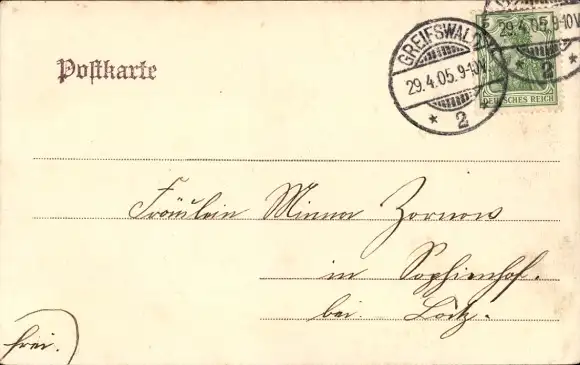 Postkarte
GREIFSWALD
29.4.05.9-10V.
* 2 *
29.4.05.9-10V.
* 2 *
DEUTSCHES REICH
Fräulein Minna Zornow
in Sophienhof.
bei Loitz.
frei.